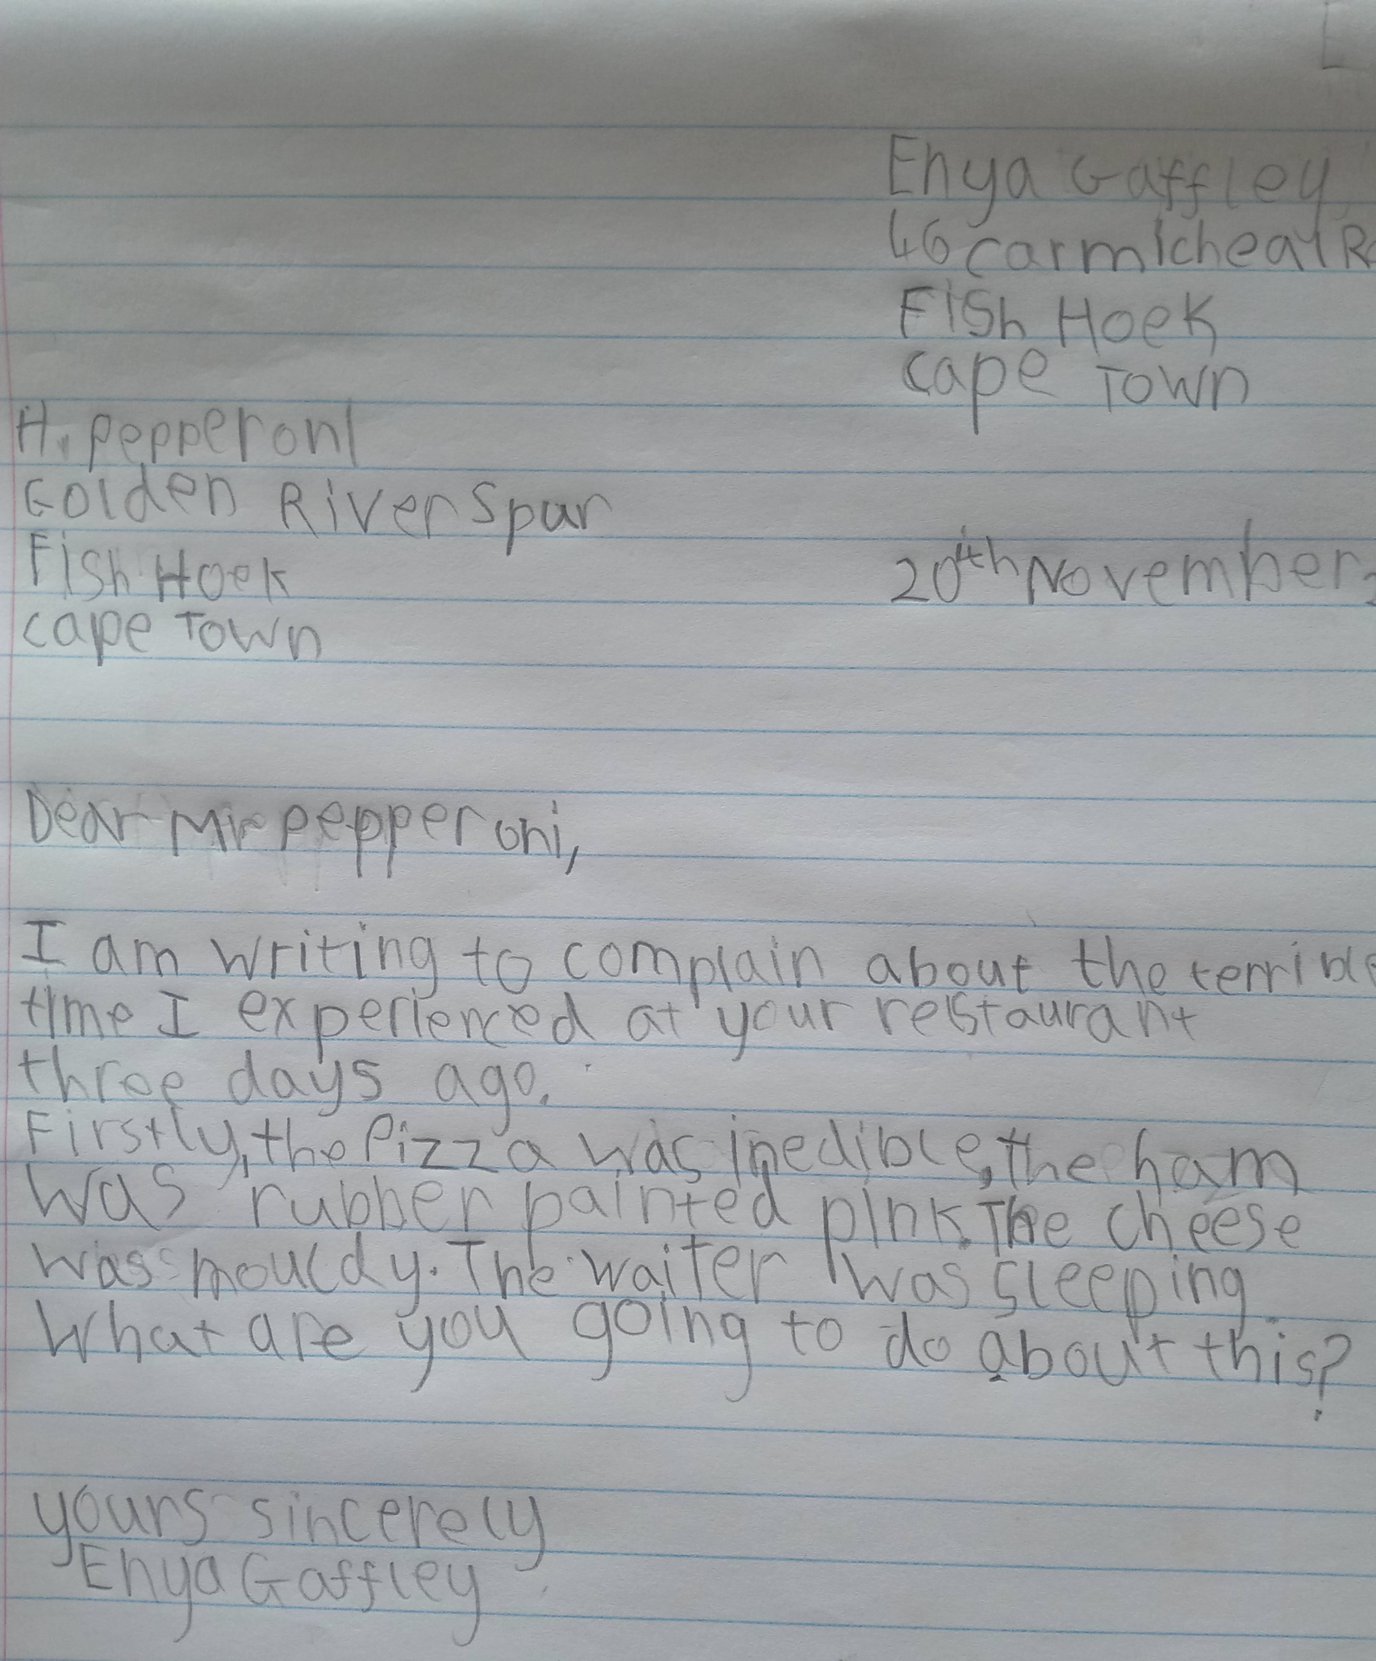 Enya Gaffley
46 carmicheal R
Fish Hoek
cape Town
H. pepperoni
Golden River Spur
Fish Hoek
cape Town
20th November
Dear Mr pepperoni,
I am writing to complain about the terrible
time I experienced at your restaurant
three days ago.
Firstly, the Pizza was inedible, the ham
was rubber painted pink. The cheese
was mouldy. The waiter was sleeping
What are you going to do about this?
yours sincerely
Enya Gaffley